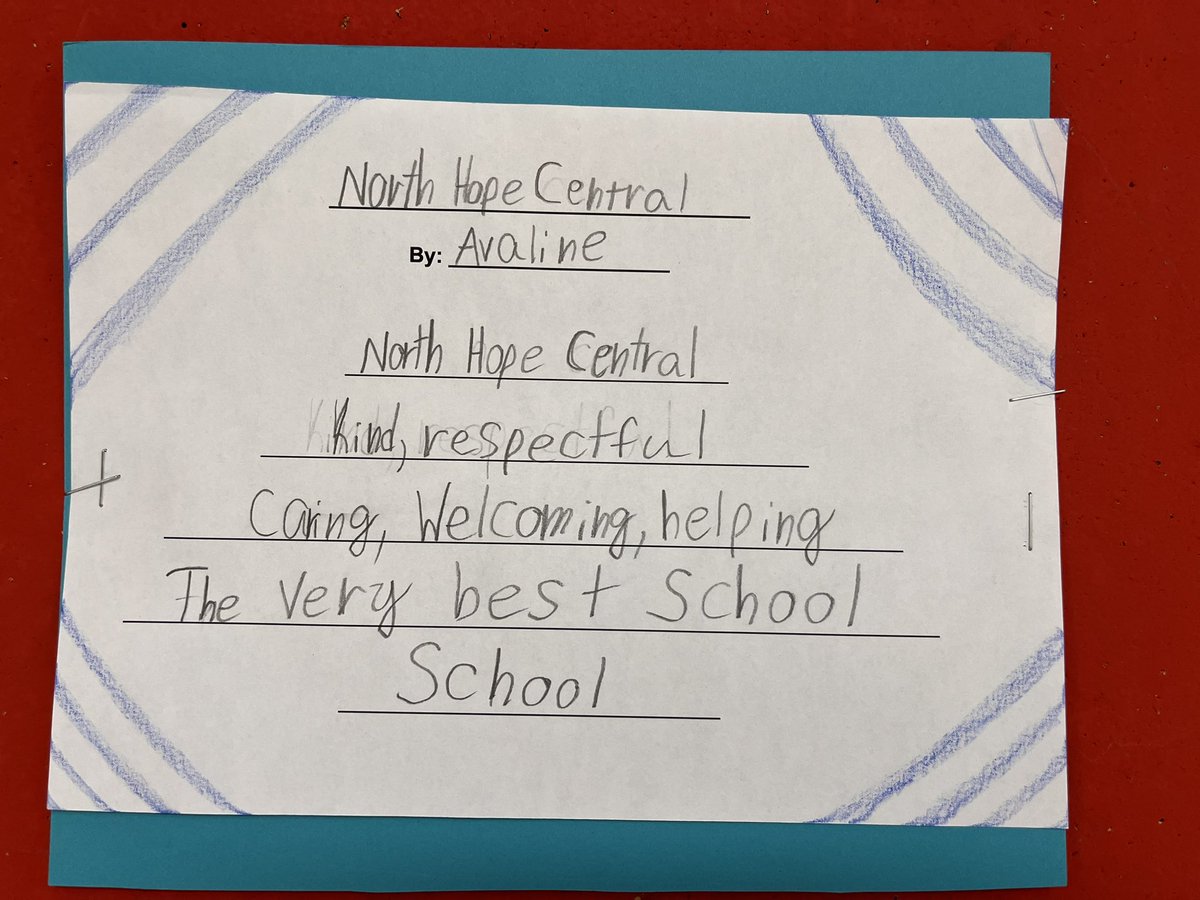 North Hope Central
By: Avaline
North Hope Central
Kind, respectful
Caring, Welcoming, helping
The very best School
School